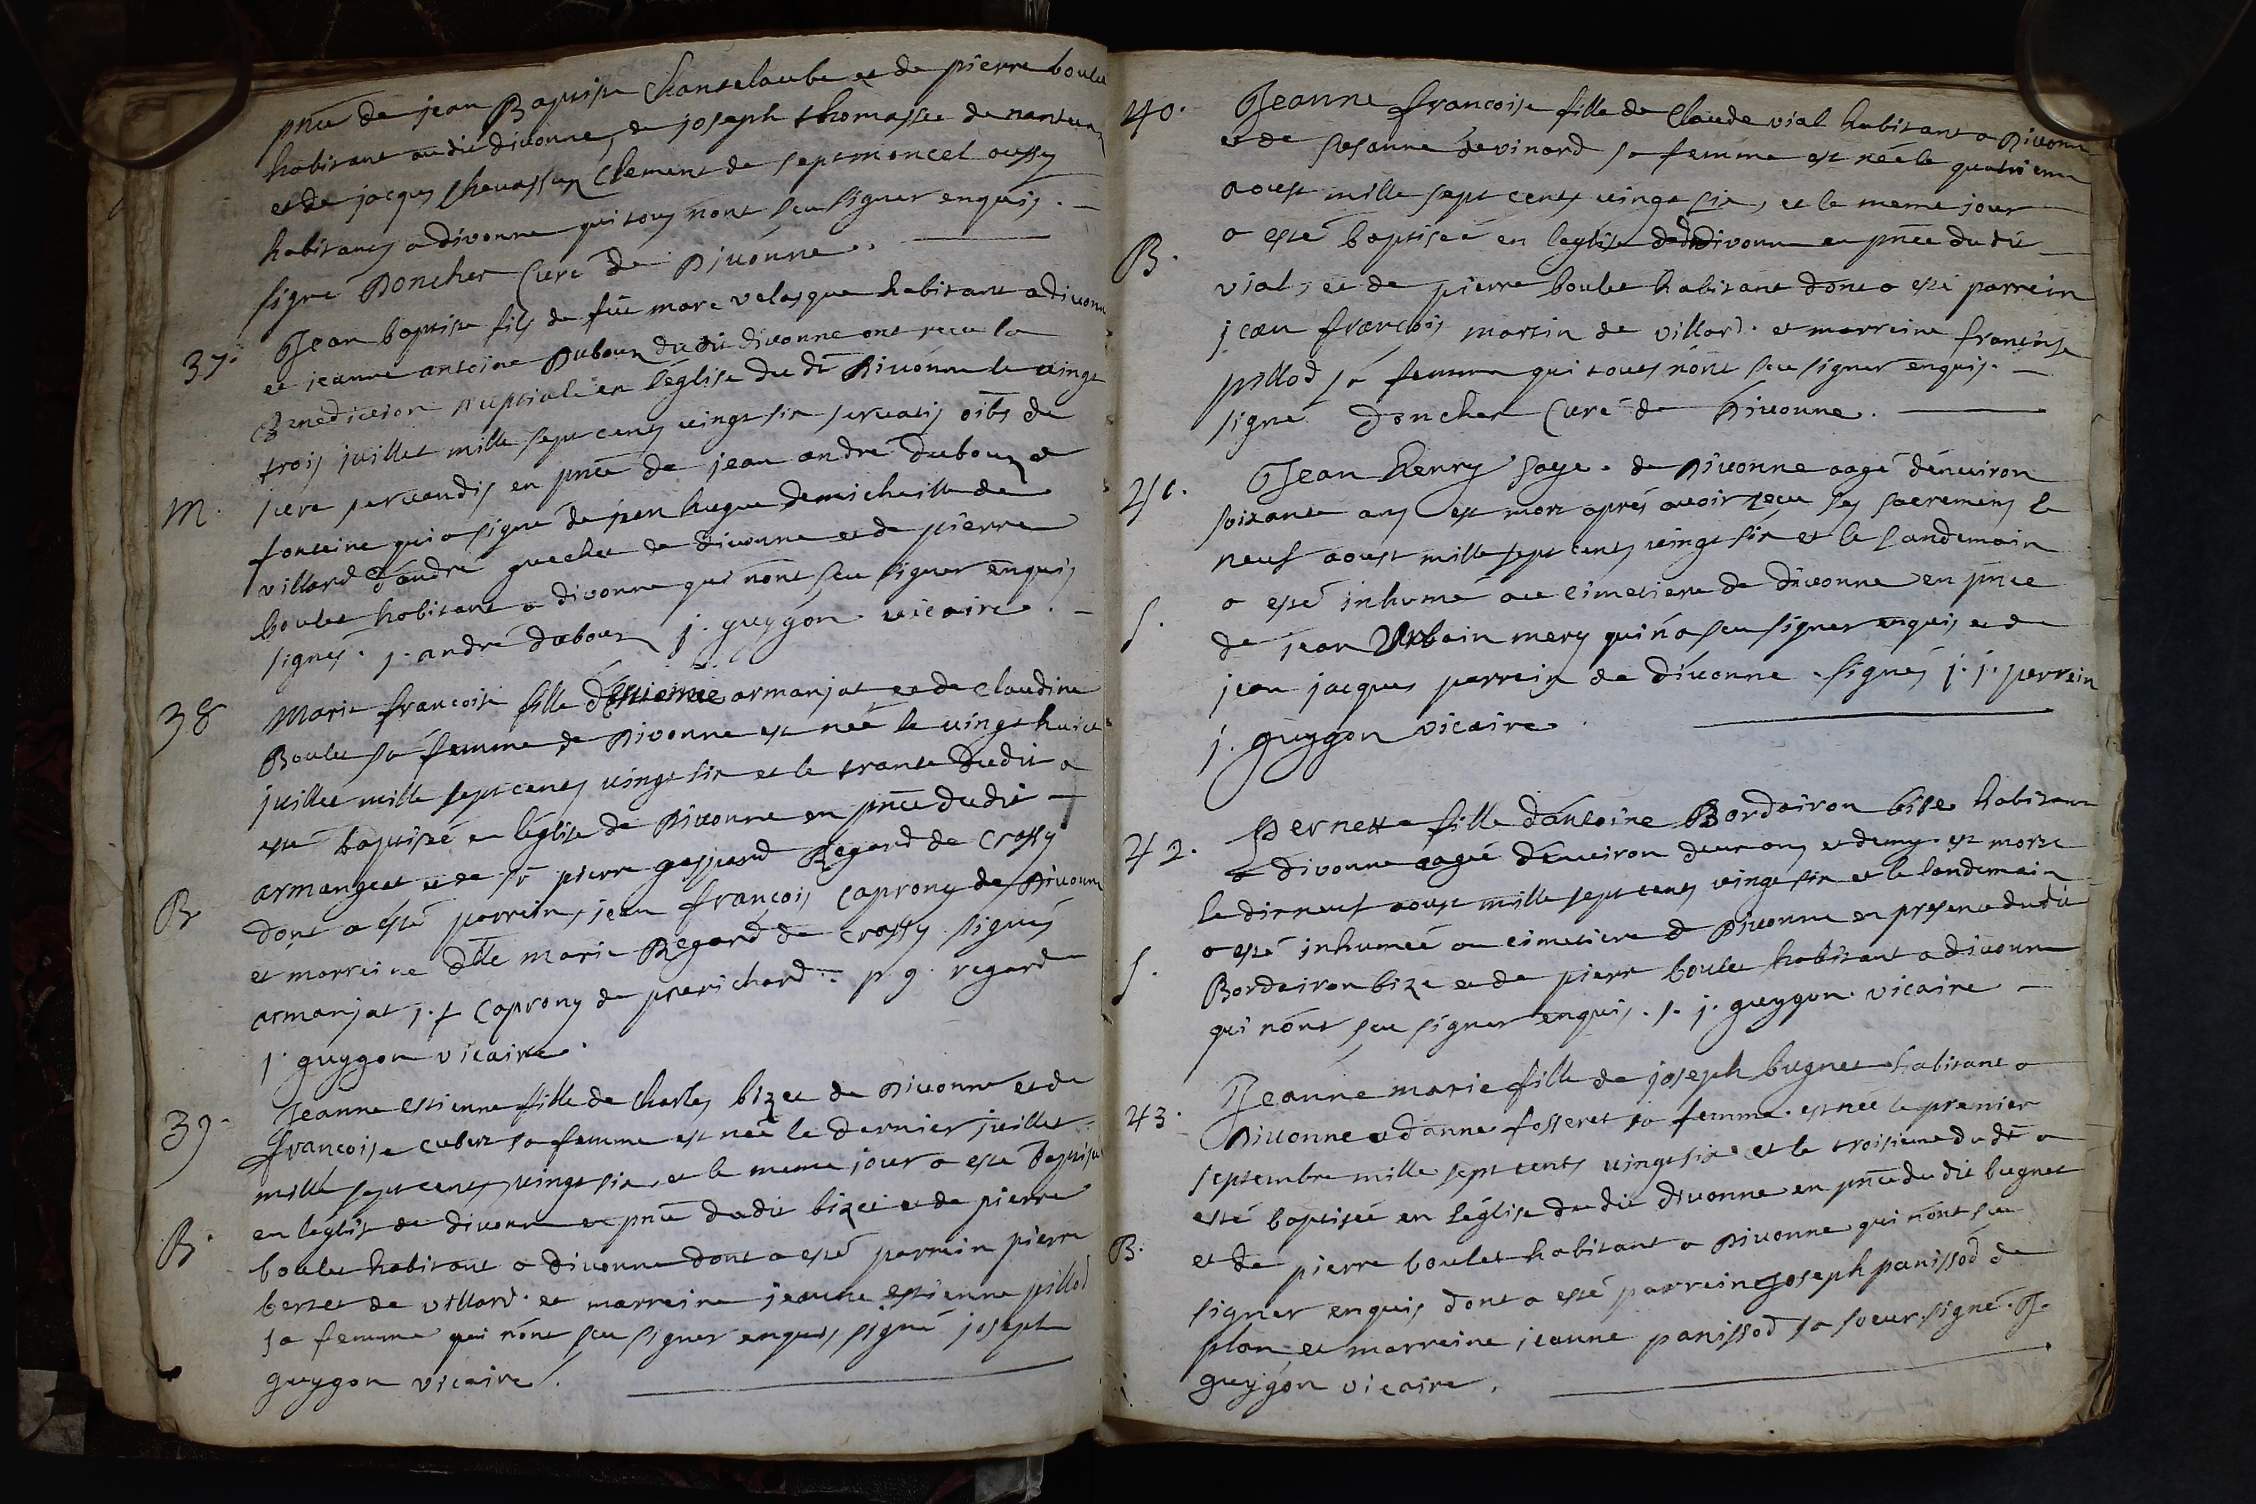 pnce de jean Baptiste Chanselaube et de pierre boulet
habitant audit divonne, de joseph thomasset de nanteua
et de jacques Chevassus Clement de septmoncel aussy
habitants a divonne qui tous n'ont sceu signer enquis.
signé Doncher Curé de Divonne.
37. Jean baptiste fils de fut marc velasque habitant a divonne
et jeanne antoine Dubouz du dit divonne ont receu la
Benediction nuptiale en l'église du dt Divonne le vingt
trois juillet mille sept cents vingt six servatis oibs de
M. jure servandis en pnce de jean andré Dubouz et
fontaine qui a signé de jean hugue demichaille de
villard d'andré guechet de divonne et de pierre
boulet habitant a divonne qui n'ont sceu signer enquis
signés. j. andré dubouz j. guygon vicaire.
38 Marie francoise fille d'Estienne armanjat et de claudine
Boulet sa femme de Divonne est née le vingt huict
juillet mille sept cents vingt six et le trante dudit a
esté baptisé en l'église de Divonne en pnce dudit
armanget et de sr pierre gaspard Regard de Crassy
B dont a esté parrein jean francois Caprony de Divonne
et marreine dlle marie Regard de crassy signés
armanjat j. f Caprony de prerichard. p. g. regard
j. guygon vicaire.
39. Jeanne estienne fille de Charles bizet de Divonne et de
francoise cubert sa femme est née le dernier juillet
mille sept cents vingt six, et le meme jour a esté Baptisé
en l'église de divonne en pnce dudit bizet et de pierre
B. boulet habitant a divonne dont a esté parrein pierre
bertet de villard. et marreine jeanne estienne pillod
sa femme qui n'ont sceu signer enquis, signé joseph
guygon vicaire.
40. Jeanne francoise fille de Claude vial habitant a Divonne
et de susanne devinard sa femme est née le quatrieme
aoust mille sept cents vingt six, et le meme jour
a esté baptiseé en l'eglise de Divonne en pnce dudit
B. vial, et de pierre boulet habitant dont a esté parrein
jean francois martin de villard. et marreine francoise
pillod sa femme qui tous n'ont sceu signer enquis.
signé Doncher Curé de Divonne.
41. Jean henry saye. de Divonne aagé d'environ
soixante ans est mort aprés avoir receu ses sacremens le
neuf aoust mille sept cents vingt six et le landemain
a esté inhumé au cimetiere de divonne en pnce
S. de jean Urbain mery qui n'a sceu signer enquis et de
jean jacques perrein de divonne. signés j. j. perrein
j. guygon vicaire.
42. Pernette fille d'antoine Bordairon bise habitant
a divonne aagée d'environ deux ans et demy est morte
le dixneuf aoust mille sept cents vingt six et le landemain
a esté inhumeé au cimetiere de Divonne en presence dudit
S. Bordairon bize et de pierre boulet habitant a divonne
qui n'ont sceu signer enquis. s. j. guygon. vicaire
43. Jeanne marie fille de joseph bugnet habitant a
Divonne et d'anne fosseret sa femme. est née le premier
septembre mille sept cents vingt six et le troisieme dudt a
esté baptiseé en l'église du dit divonne en pnce du dit bugnet
B. et de pierre boulet habitant a Divonne qui n'ont sceu
signer enquis, dont a esté parrein Joseph panissod de
plan, et marreine jeanne panissod sa soeur signé. J.
guygon vicaire.